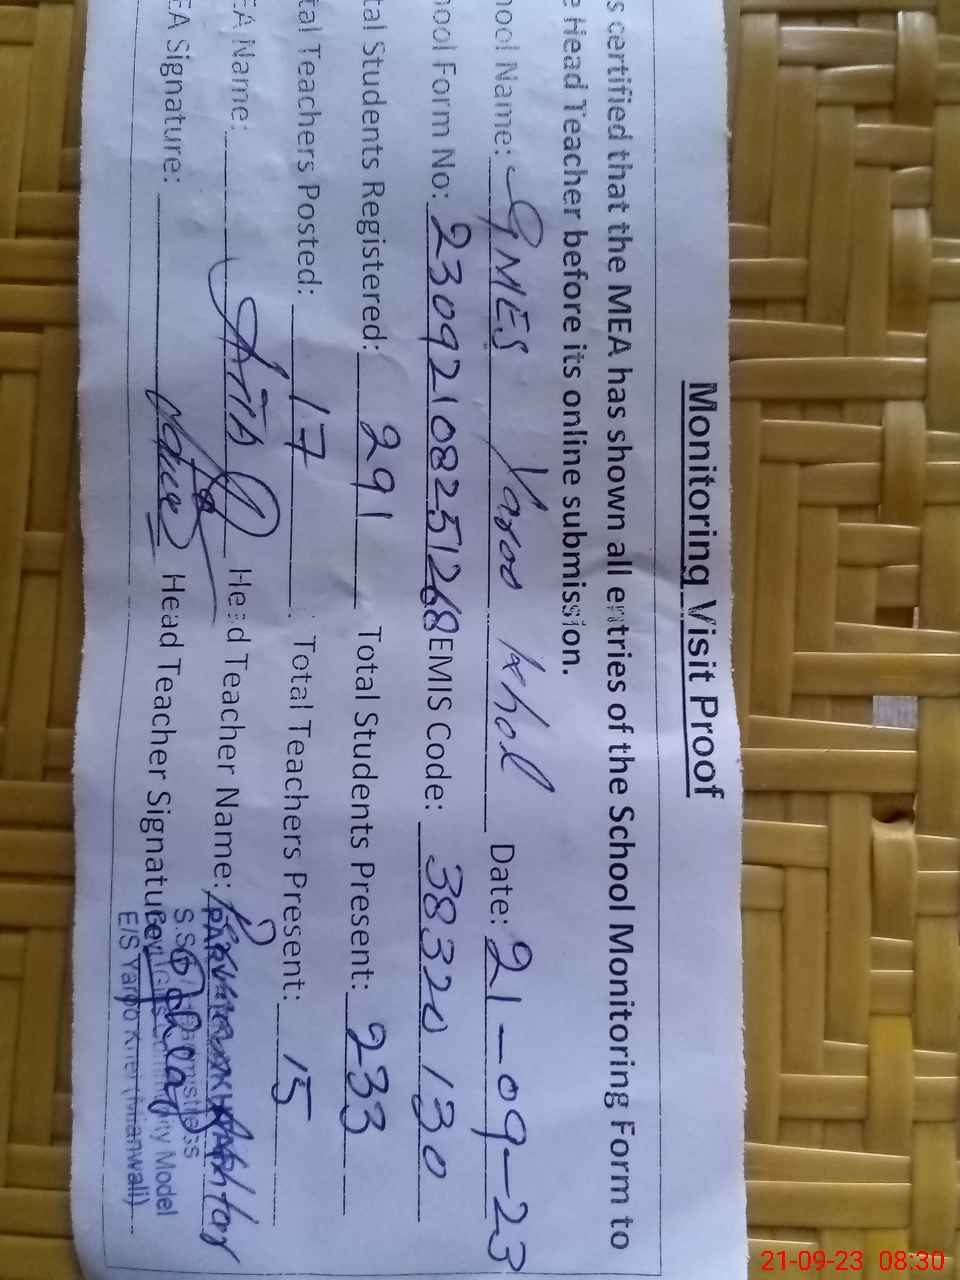 Monitoring Visit Proof
s certified that the MEA has shown all entries of the School Monitoring Form to
e Head Teacher before its online submission.
hool Name: GMES Yaroo Khel Date: 21-09-23
hool Form No: 23092108251268 EMIS Code: 38320130
tal Students Registered: 291 Total Students Present: 233
tal Teachers Posted: 17 Total Teachers Present: 15
EA Name: Head Teacher Name: Akhtar
EA Signature: Head Teacher Signature:
Model
E/S Yaroo Khel (Mianwali)
21-09-23 08:30